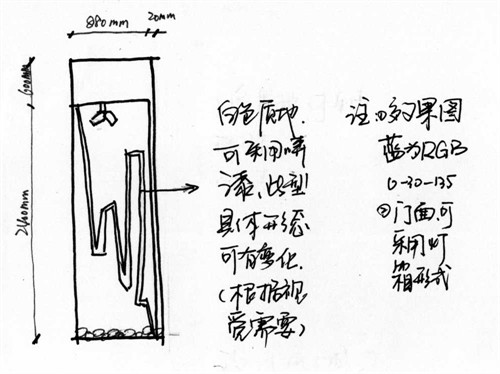 880mm 20mm
600mm
2400mm
白色质地.
可采用喷
漆、此型
具体形态
可有变化.
(根据视
觉需要)
注:①效果图
蓝为RGB
0-30-135
②门面可
采用灯
箱形式